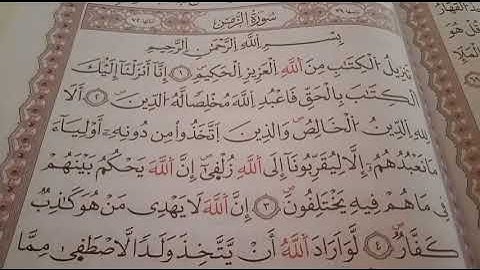 سُورَةُ الزُّمَرِ
بِسْمِ اللَّهِ الرَّحْمَٰنِ الرَّحِيمِ
تَنْزِيلُ الْكِتَابِ مِنَ اللَّهِ الْعَزِيزِ الْحَكِيمِ ١ إِنَّا أَنْزَلْنَا إِلَيْكَ
الْكِتَابَ بِالْحَقِّ فَاعْبُدِ اللَّهَ مُخْلِصًا لَهُ الدِّينَ ٢ أَلَا
لِلَّهِ الدِّينُ الْخَالِصُ وَالَّذِينَ اتَّخَذُوا مِنْ دُونِهِ أَوْلِيَاءَ
مَا نَعْبُدُهُمْ إِلَّا لِيُقَرِّبُونَا إِلَى اللَّهِ زُلْفَى إِنَّ اللَّهَ يَحْكُمُ بَيْنَهُمْ
فِي مَا هُمْ فِيهِ يَخْتَلِفُونَ ٣ إِنَّ اللَّهَ لَا يَهْدِي مَنْ هُوَ كَاذِبٌ
كَفَّارٌ ٤ لَوْ أَرَادَ اللَّهُ أَنْ يَتَّخِذَ وَلَدًا لَاصْطَفَى مِمَّا
قُلْ هُوَ